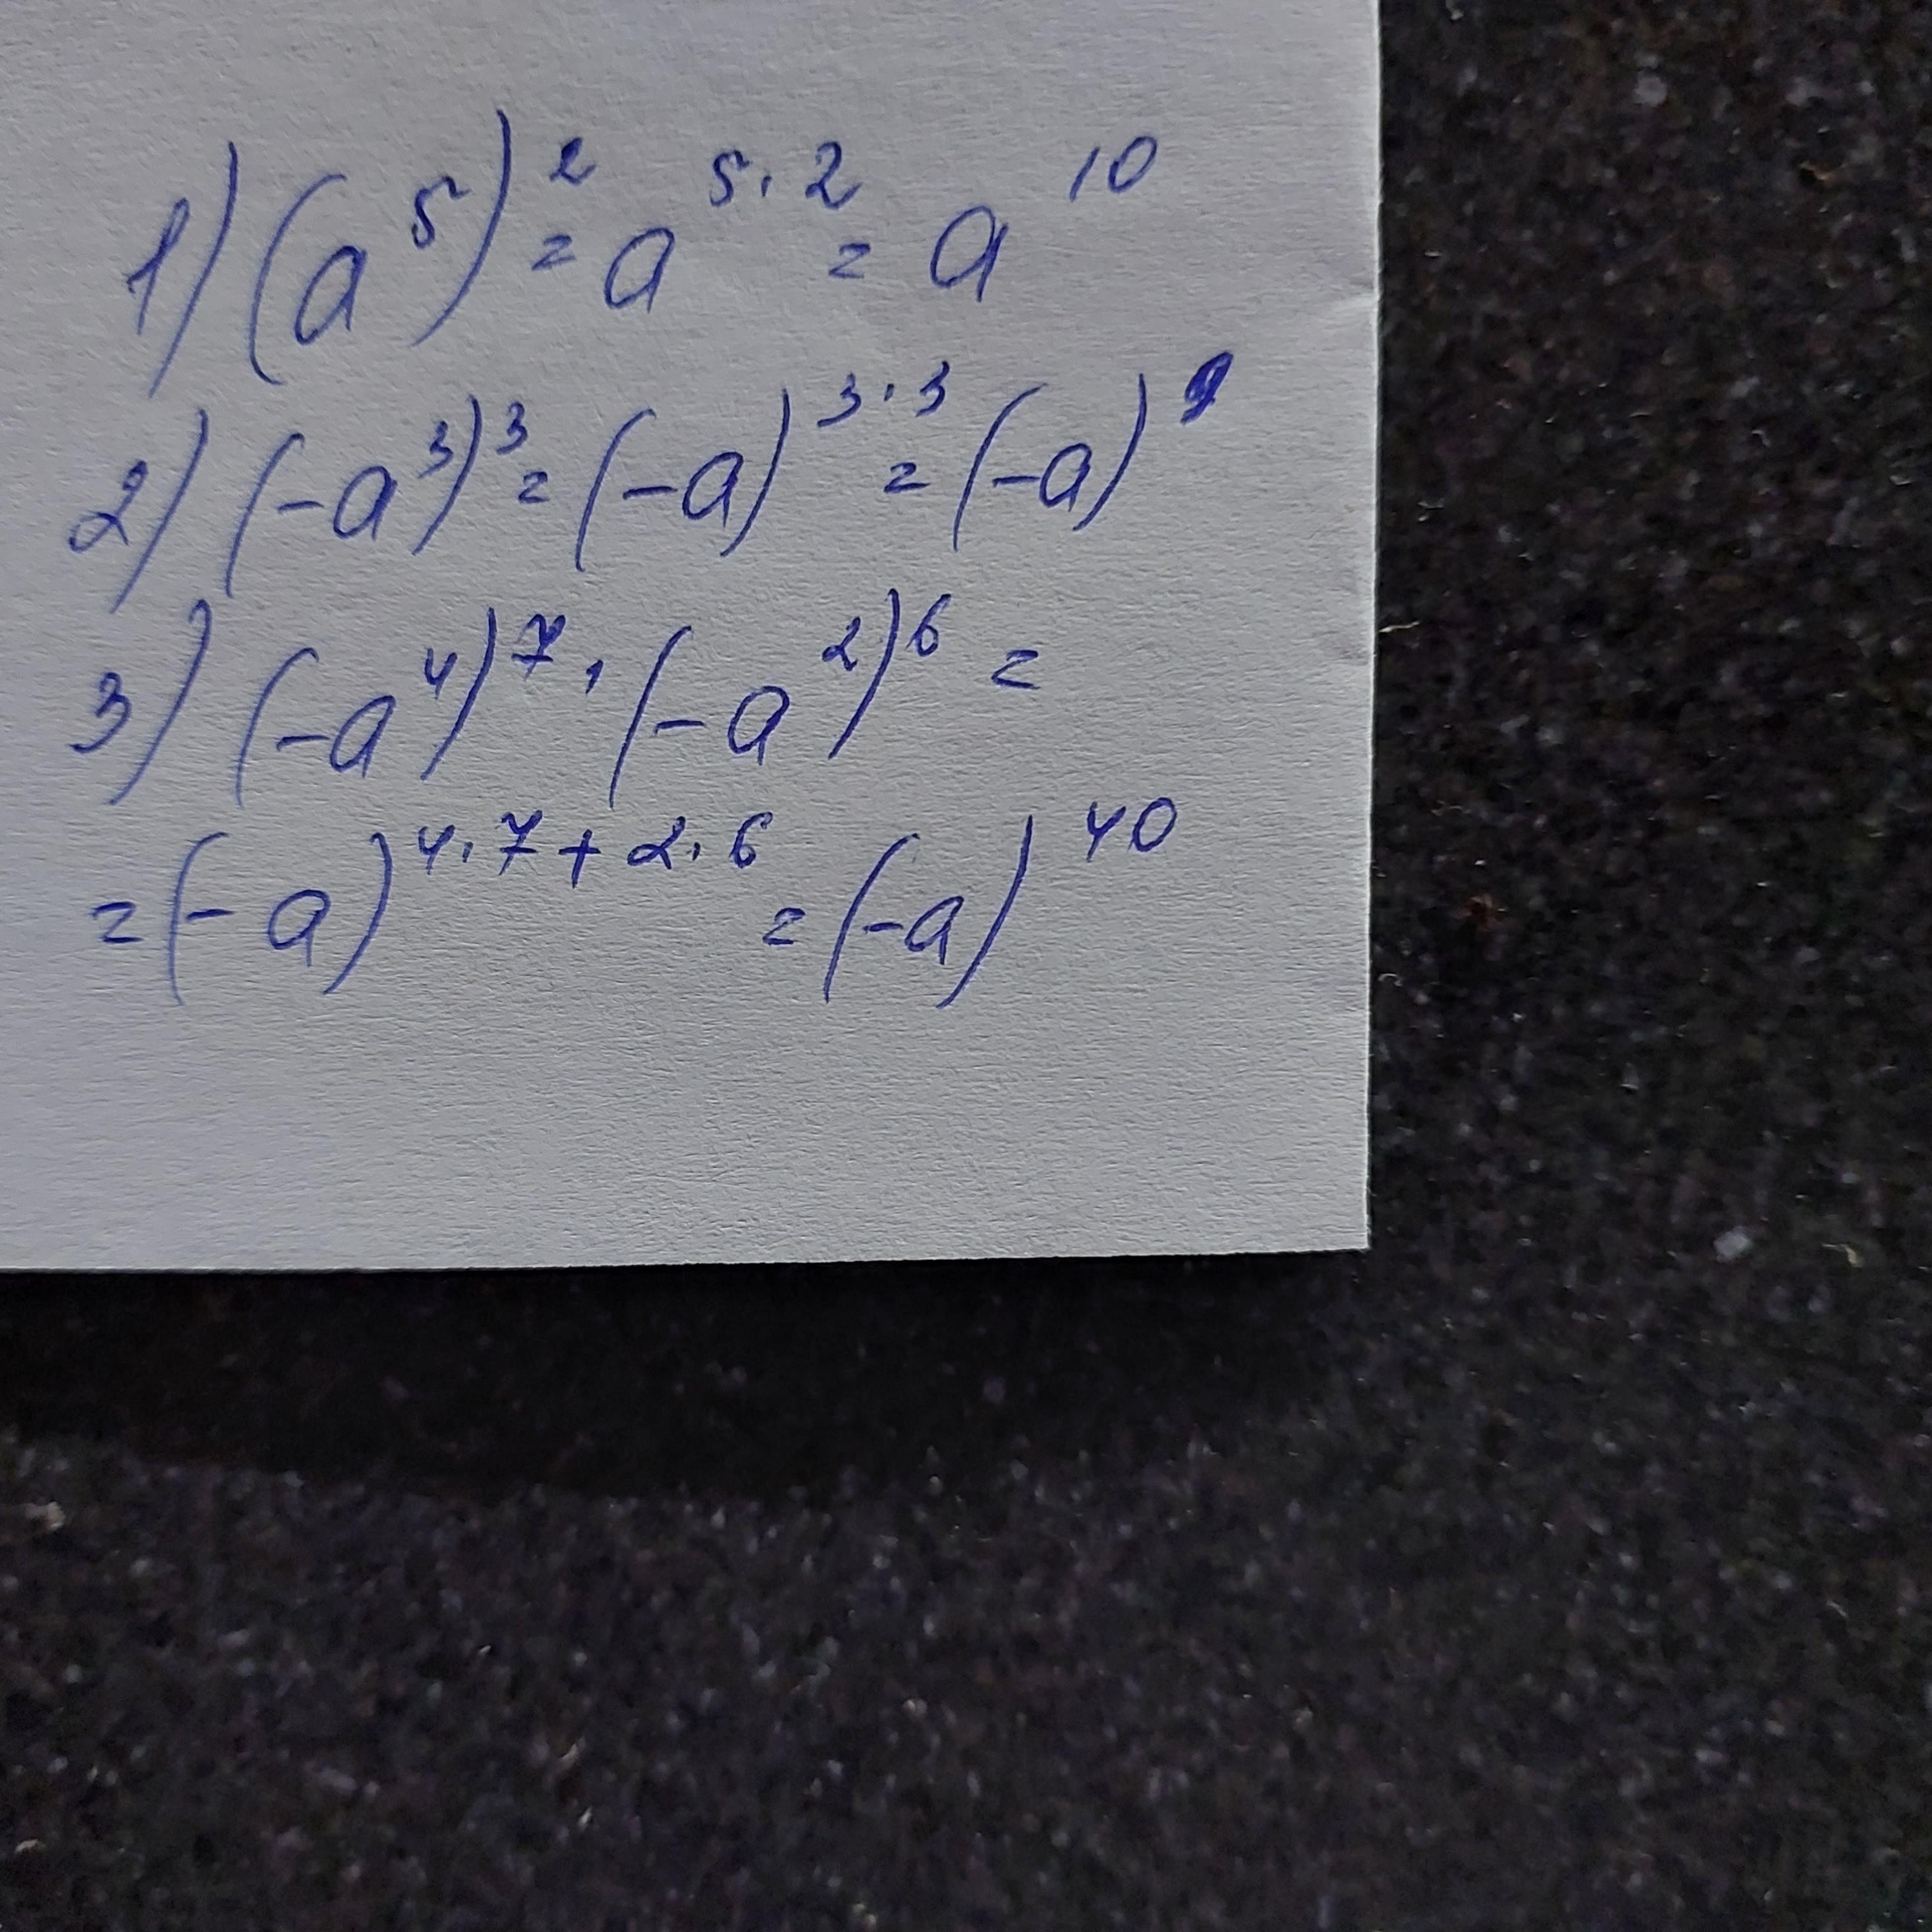 1) (a⁵)² = a⁵·² = a¹⁰
2) (-a³)³ = (-a)³·³ = (-a)⁹
3) (-a⁴)⁷ · (-a²)⁶ =
= (-a)⁴·⁷⁺²·⁶ = (-a)⁴⁰